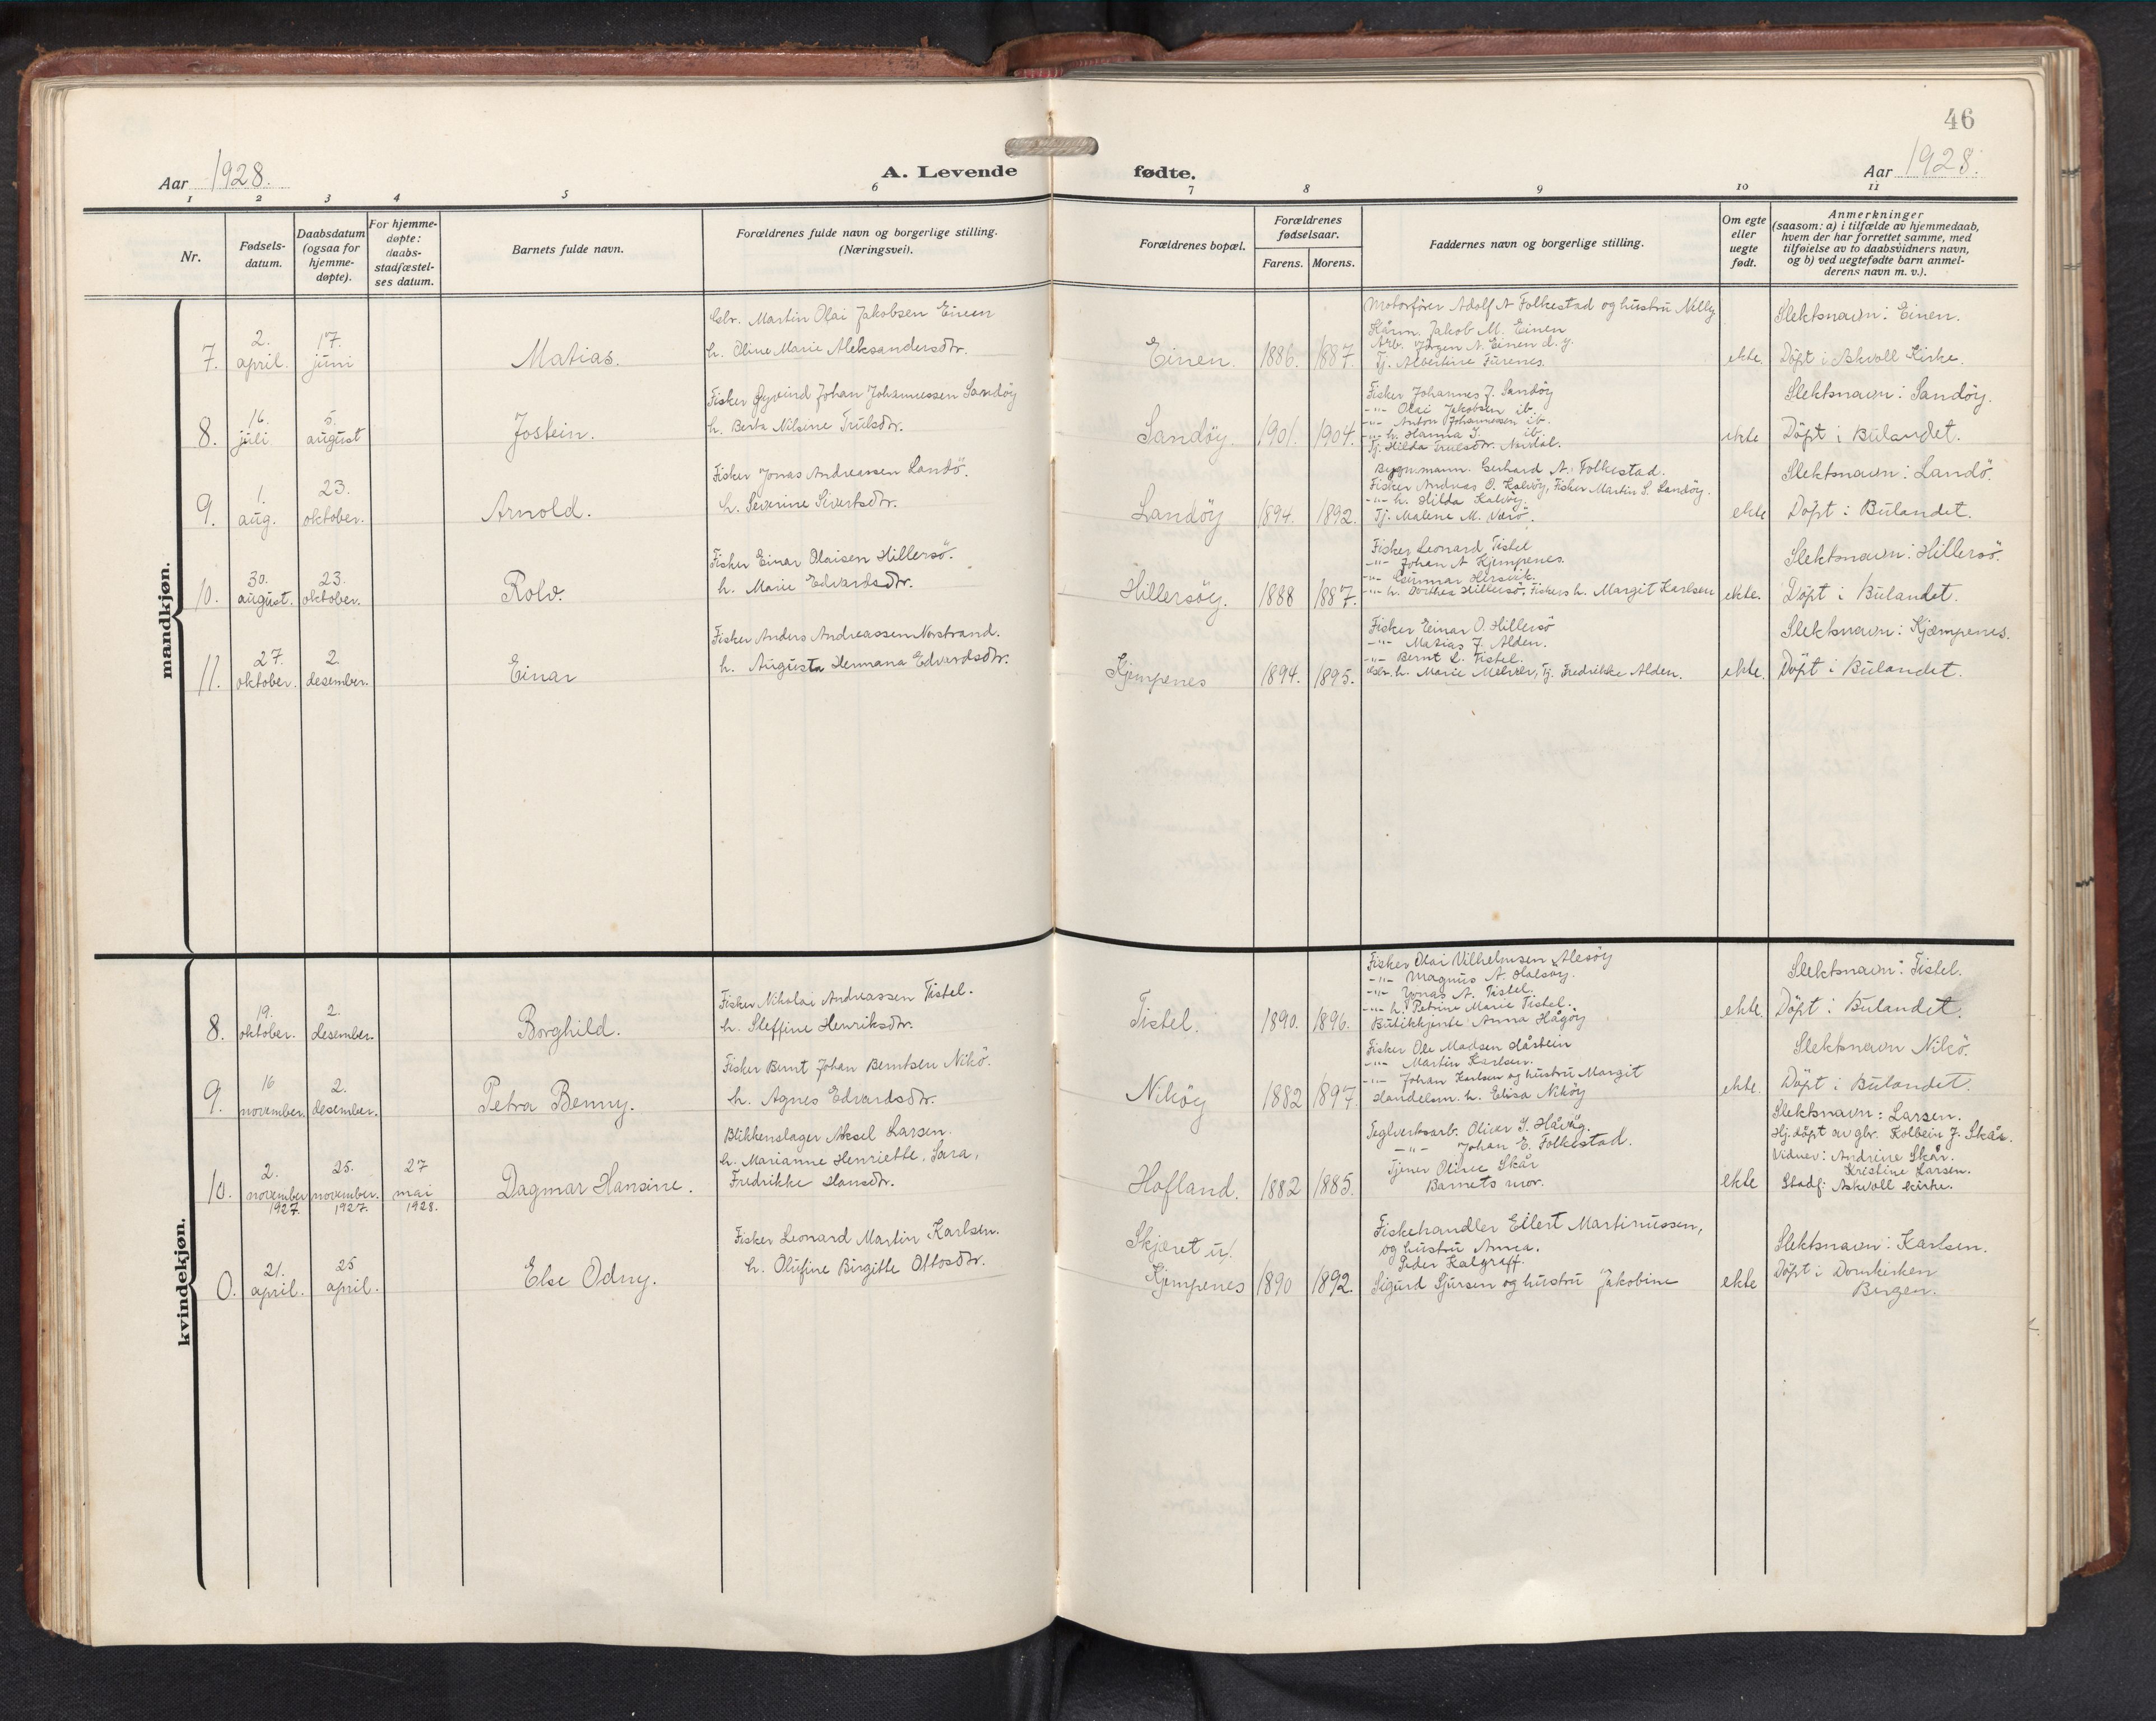 46
Aar 1928.
A. Levende fødte.
Aar 1928.
1 2 3 4 5 6 7 8 9 10 11
Nr.
Fødsels-
datum.
Daabsdatum
(ogsaa for
hjemme-
døpte).
For hjemme-
døpte:
daabs-
stadfæstel-
ses datum.
Barnets fulde navn.
Forældrenes fulde navn og borgerlige stilling.
(Næringsvei).
Forældrenes bopæl.
Forældrenes
fødselsaar.
Farens. Morens.
Faddernes navn og borgerlige stilling.
Om egte
eller
uegte
født.
Anmerkninger
(saasom: a) i tilfælde av hjemmedaab,
hvem der har forrettet samme, med
tilføielse av to daabsvidners navn,
og b) ved uegtefødte barn anmel-
derens navn m. v.).
mandkjøn.
7.
2.
april.
17.
juni
Matias.
Gbr. Martin Olai Jakobsen Einen
h. Oline Marie Aleksandersdtr.
Einen. 1886. 1887.
Motorfører Adolf A Folkestad og hustru Nelly
Jakob M. Einen
Arb. Jörgen A. Einen d. y.
Tj. Albertine Furenes.
ekte.
Slektsnavn: Einen.
Döpt i Askvoll Kirke.
8.
16.
juli.
5.
august
Jostein.
Fisker Öyvind Johan Johannessen Sandöy
h. Berta Nilsine Trulsdtr.
Sandöy. 1901. 1904.
Fisker Johannes J. Sandöy
-"- Olai Jakobsen ib.
-"- Anton Johannessen ib.
-"- h. Hanna J. ib.
Tj. Hilda Trulsdtr.
ekte
Slektsnavn: Sandöy.
Döpt i Bulandet.
9.
1.
aug.
23.
oktober.
Arnold.
Fisker Jonas Andreassen Landö.
h. Severine Sivertsdtr.
Landöy 1894. 1892.
Bygn.mann. Gerhard A. Folkestad.
Fisker Andreas O. Kalvöy, Fisker Martin S. Landöy.
-"- h. Hilda Kalvöy.
Tj. Malene M. Værö.
ekte
Slektsnavn: Landö.
Döpt i Bulandet.
10.
30.
august.
23.
oktober.
Rolv.
Fisker Einar Olaisen Hillersö.
h. Marie Edvardsdtr.
Hillersöy. 1888 1887.
Fisker Leonard Tistel
-"- Johan A Kjempenes.
-"- Gunnar Hersvik.
-"- h. Dorthea Hillersö, Fiskers h. Margit Karlsen
ekte.
Slektsnavn: Hillersö.
Döpt i Bulandet.
11.
27.
oktober.
2.
desember.
Einar
Fisker Anders Andreassen Norstrand.
h. Augusta Hermana Edvardsdtr.
Kjempenes 1894. 1895.
Fisker Einar O. Hillersö
-"- Matias J. Alden.
-"- Bernt L. Tistel.
Gbr. h. Marie Melvær, Tj. Fredrikke Alden.
ekte.
Slektsnavn: Kjæmpenes.
Döpt i Bulandet.
kvindekjøn.
8.
19.
oktober.
2.
desember.
Borghild.
Fisker Nikolai Andreassen Tistel.
h. Steffine Henriksdtr.
Tistel. 1890. 1896.
Fisker Olai Vilhelmsen Alesöy
-"- Magnus A.
-"- Jonas A. Tistel.
-"- h. Petrine Marie Tistel.
Butikkjente Anna Hågöy
ekte.
Slektsnavn: Tistel.
Döpt i Bulandet.
9.
16
november.
2.
desember.
Petra Benny.
Fisker Bernt Johan Berntsen Nikö.
h. Agnes Edvardsdtr.
Niköy 1882 1897.
Fisker Ole Madsen Hårbein
-"- Martin Karlsen.
-"- Johan Karlsen og hustru Margit
Handelsm. h. Elisa Niköy
ekte.
Slektsnavn Nikö.
Döpt i Bulandet.
10.
2.
november
1927.
25.
november.
1927.
27
mai
1928.
Dagmar Hansine.
Blikkenslager Aksel Larsen.
h. Marianne Henriette, Sara,
Fredrikke Hansdtr.
Hofland. 1882 1885.
Teglverksarb. Oliver J. Håvåg.
-"- Johan E. Folkestad.
Tjener Oline Skår
Barnets mor.
ekte
Slektsnavn: Larsen.
Hj.döpt av gbr. Kolbein J. Skår.
Vidner: Andrine Skår.
Kristine Larsen.
Stadf: Askvoll kirke.
0.
21.
april.
25
april.
Else Odny.
Fisker Leonard Martin Karlsen.
h. Olufine Birgitte Ottosdtr.
Skjæret u/
Kjempenes 1890 1892.
Fiskehandler Eilert Martinussen,
og hustru Anna.
Peder Kalgraff.
Sigurd Sjursen og hustru Jakobine
ekte
Slektsnavn: Karlsen.
Döpt i Domkirken
Bergen.